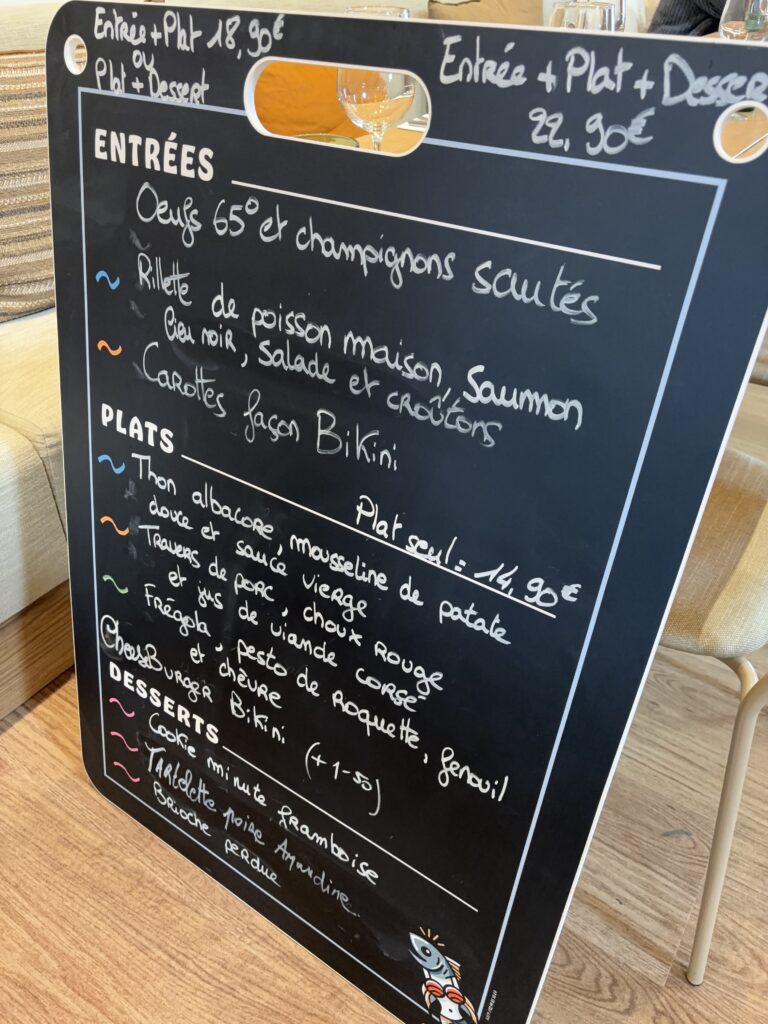 Entrée + Plat 18,90€
ou
Plat + Dessert
Entrée + Plat + Dessert
22,90€
ENTRÉES
Oeufs 65° et champignons sautés
Rillette de poisson maison, Saumon
lieu noir, salade et croûtons
Carottes façon Bikini
PLATS
Plat seul : 14,90€
Thon albacore, mousseline de patate
douce et sauce vierge
Travers de porc, choux rouge
et jus de viande corsé
Frégola, pesto de roquette, fenouil
et chèvre
CheeseBurger Bikini (+1-50)
DESSERTS
Cookie minute framboise
Tartelette poire Amandine
Brioche perdue